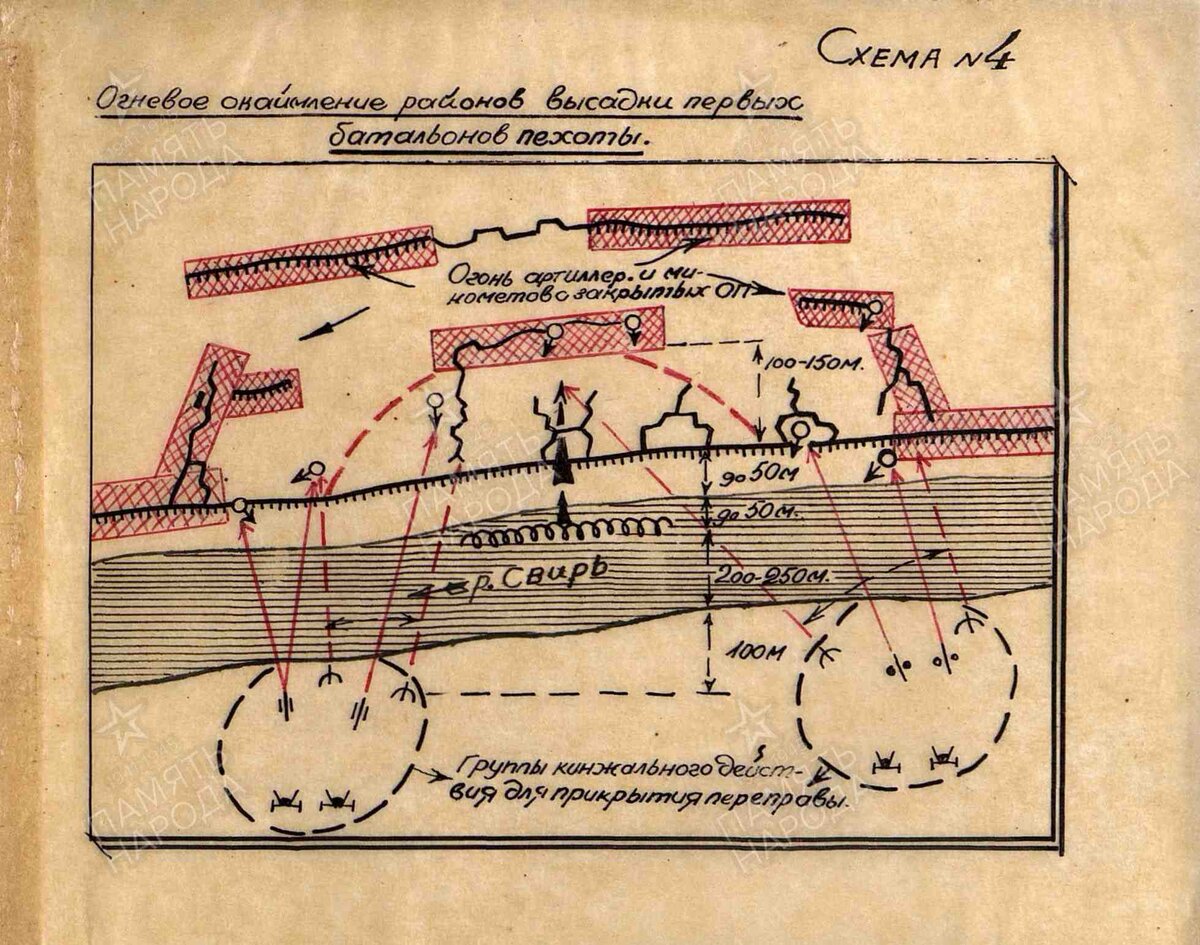 Схема №4
Огневое окаймление районов высадки первых
батальонов пехоты.
Огонь артиллер. и ми-
нометов с закрытых ОП
100-150м.
до 50м
до 50м.
200-250м.
р. Свирь
100м
Группы кинжального дейст-
вия для прикрытия переправы.
ПАМЯТЬ
НАРОДА
ПАМЯТЬ
НАРОДА
ПАМЯТЬ
НАРОДА
ПАМЯТЬ
НАРОДА
ПАМЯТЬ
НАРОДА
ПАМЯТЬ
НАРОДА